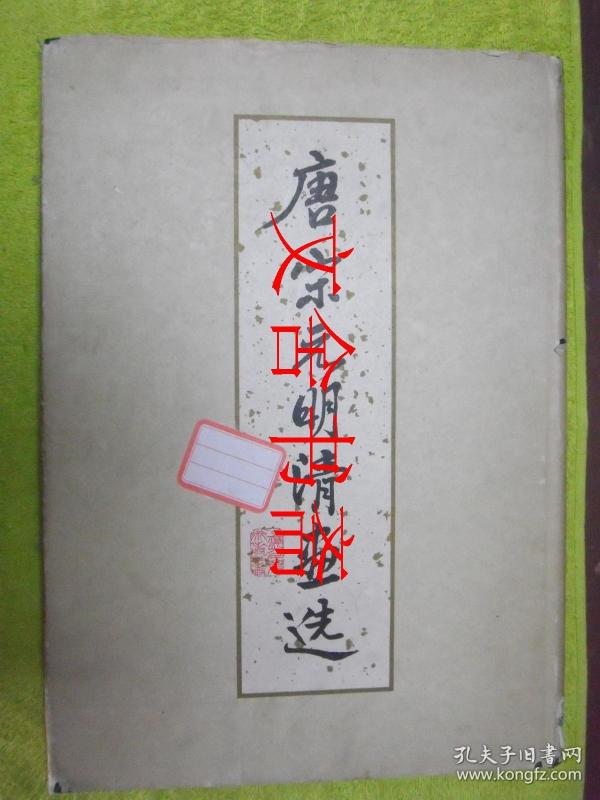 唐宋元明清画选
文舍书斋
孔夫子旧书网
www.kongfz.com